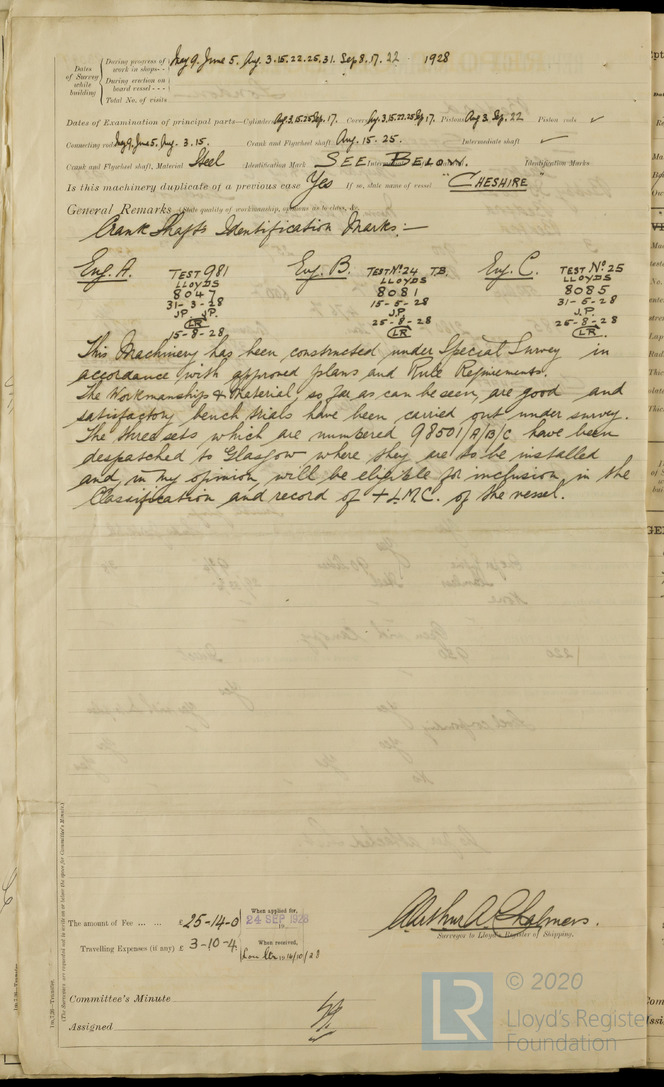 Dates of Survey while building
During progress of work in shops - - May 9. June 5. Aug. 3.15.22.25.31. Sep 8.17.22 1928
During erection on board vessel - - -
Total No. of visits
Dates of Examination of principal parts—Cylinders Aug. 3.15.25 Sep. 17. Covers Aug. 3.15.22.25 Sep 17. Pistons Aug 3 Sep. 22 Piston rods ✓
Connecting rods May 9, June 5. Aug. 3.15. Crank and Flywheel shaft Aug. 15. 25. Intermediate shaft ✓
Crank and Flywheel shaft, Material Steel Identification Mark SEE BELOW. Identification Marks
Is this machinery duplicate of a previous case Yes If so, state name of vessel "CHESHIRE"
General Remarks (State quality of workmanship, opinions as to class, &c.
Crank Shafts Identification Marks:—
Eng. A. TEST 981 Eng. B. TEST No. 24 T.B. Eng. C. TEST No. 25
LLOYDS LLOYDS LLOYDS
8047 8081 8085
31-3-28 15-5-28 31-5-28
J.P. J.P. J.P. J.P.
LR 25-8-28 25-8-28
15-8-28 LR LR
This Machinery has been constructed under Special Survey in
accordance with approved plans and Rule Requirements.
The Workmanship & Material, so far as can be seen, are good and
satisfactory, bench trials have been carried out under survey.
The three sets which are numbered 98501/A/B/C have been
despatched to Glasgow where they are to be installed
and, in my opinion, will be eligible for inclusion in the
Classification and record of + L.M.C. of the vessel.
The amount of Fee ... ... £ 25-14-0 When applied for, 24 SEP 1928
Travelling Expenses (if any) £ 3-10-4. When received, 16/10/28
Arthur A. Chalmers.
Surveyor to Lloyd's Register of Shipping.
Committee's Minute
Assigned
(The Surveyors are requested not to write on or below the space for Committee's Minute.)
© 2020
LR Lloyd's Register
Foundation